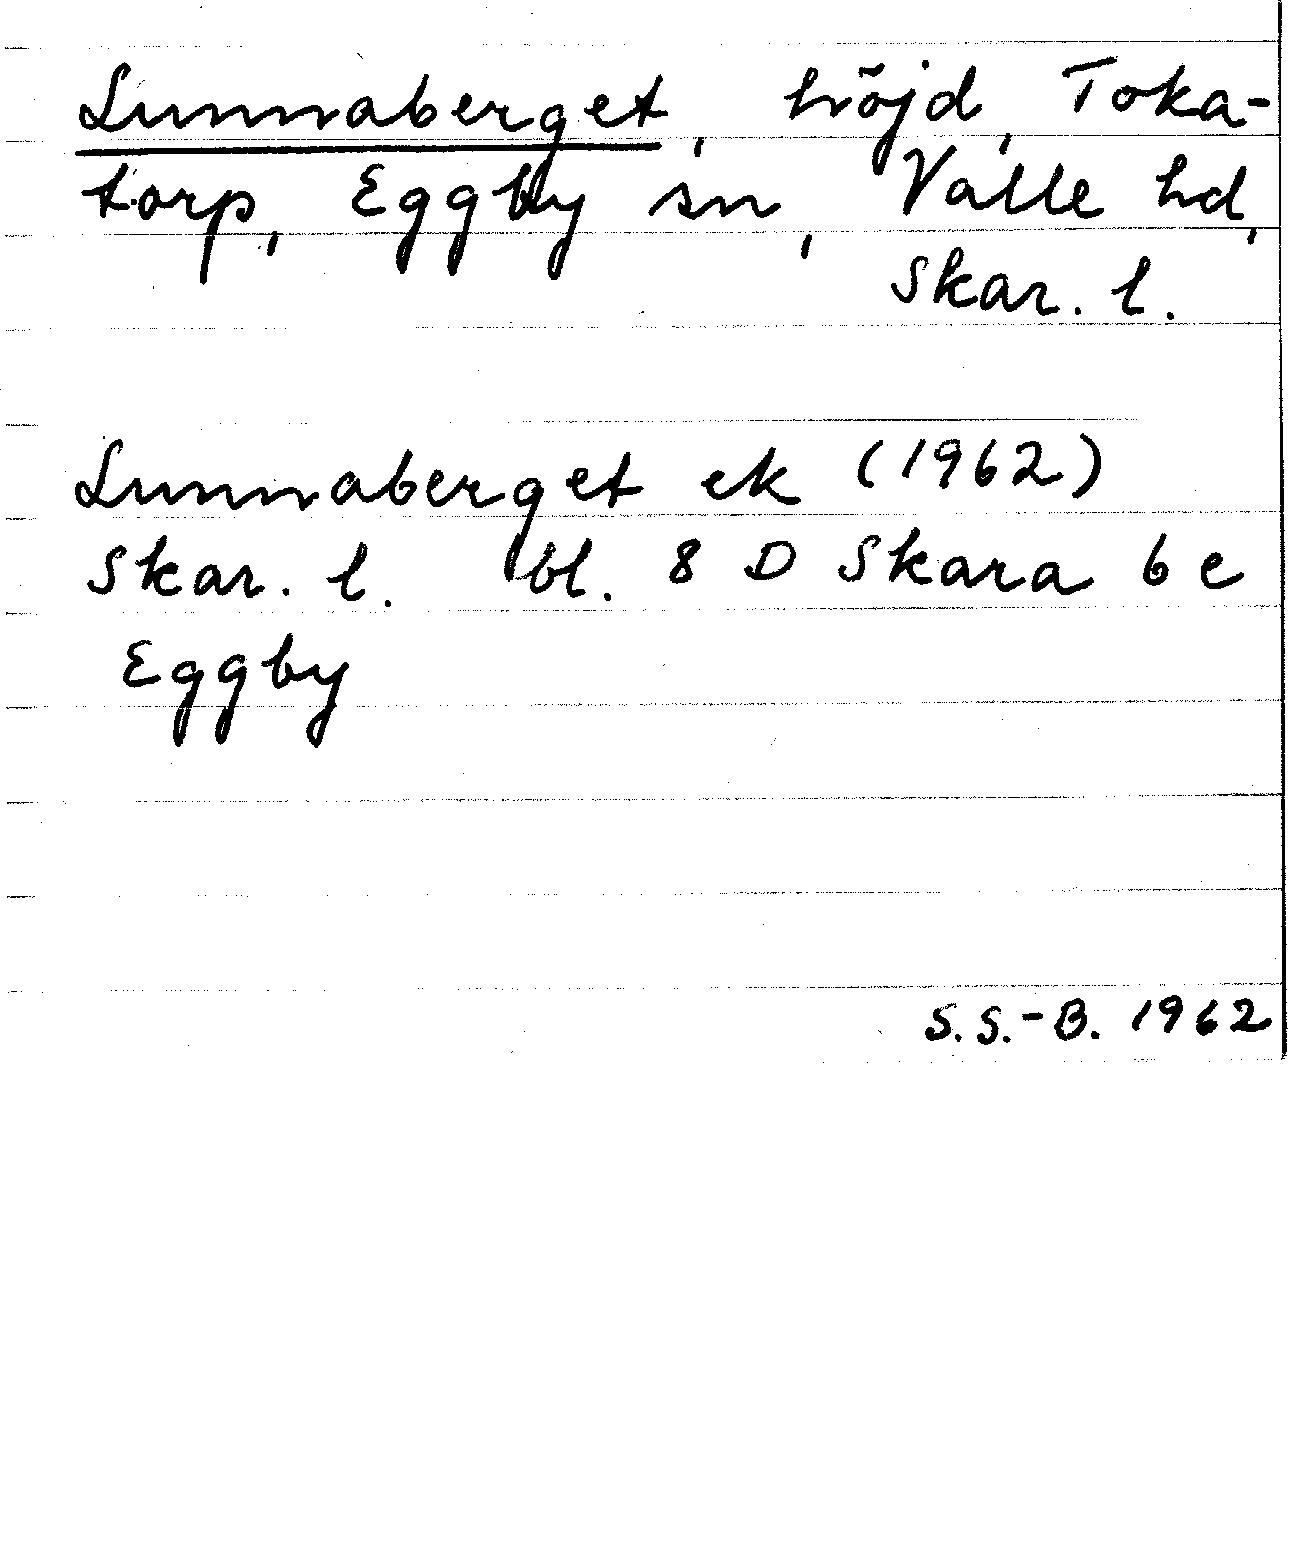 Lunnaberget, höjd, Toka-
torp, Eggby sn, Valle hd,
Skar. l.
Lunnaberget ek (1962)
Skar. l. bl. 8 D Skara 6 e
Eggby
S.S.-B. 1962